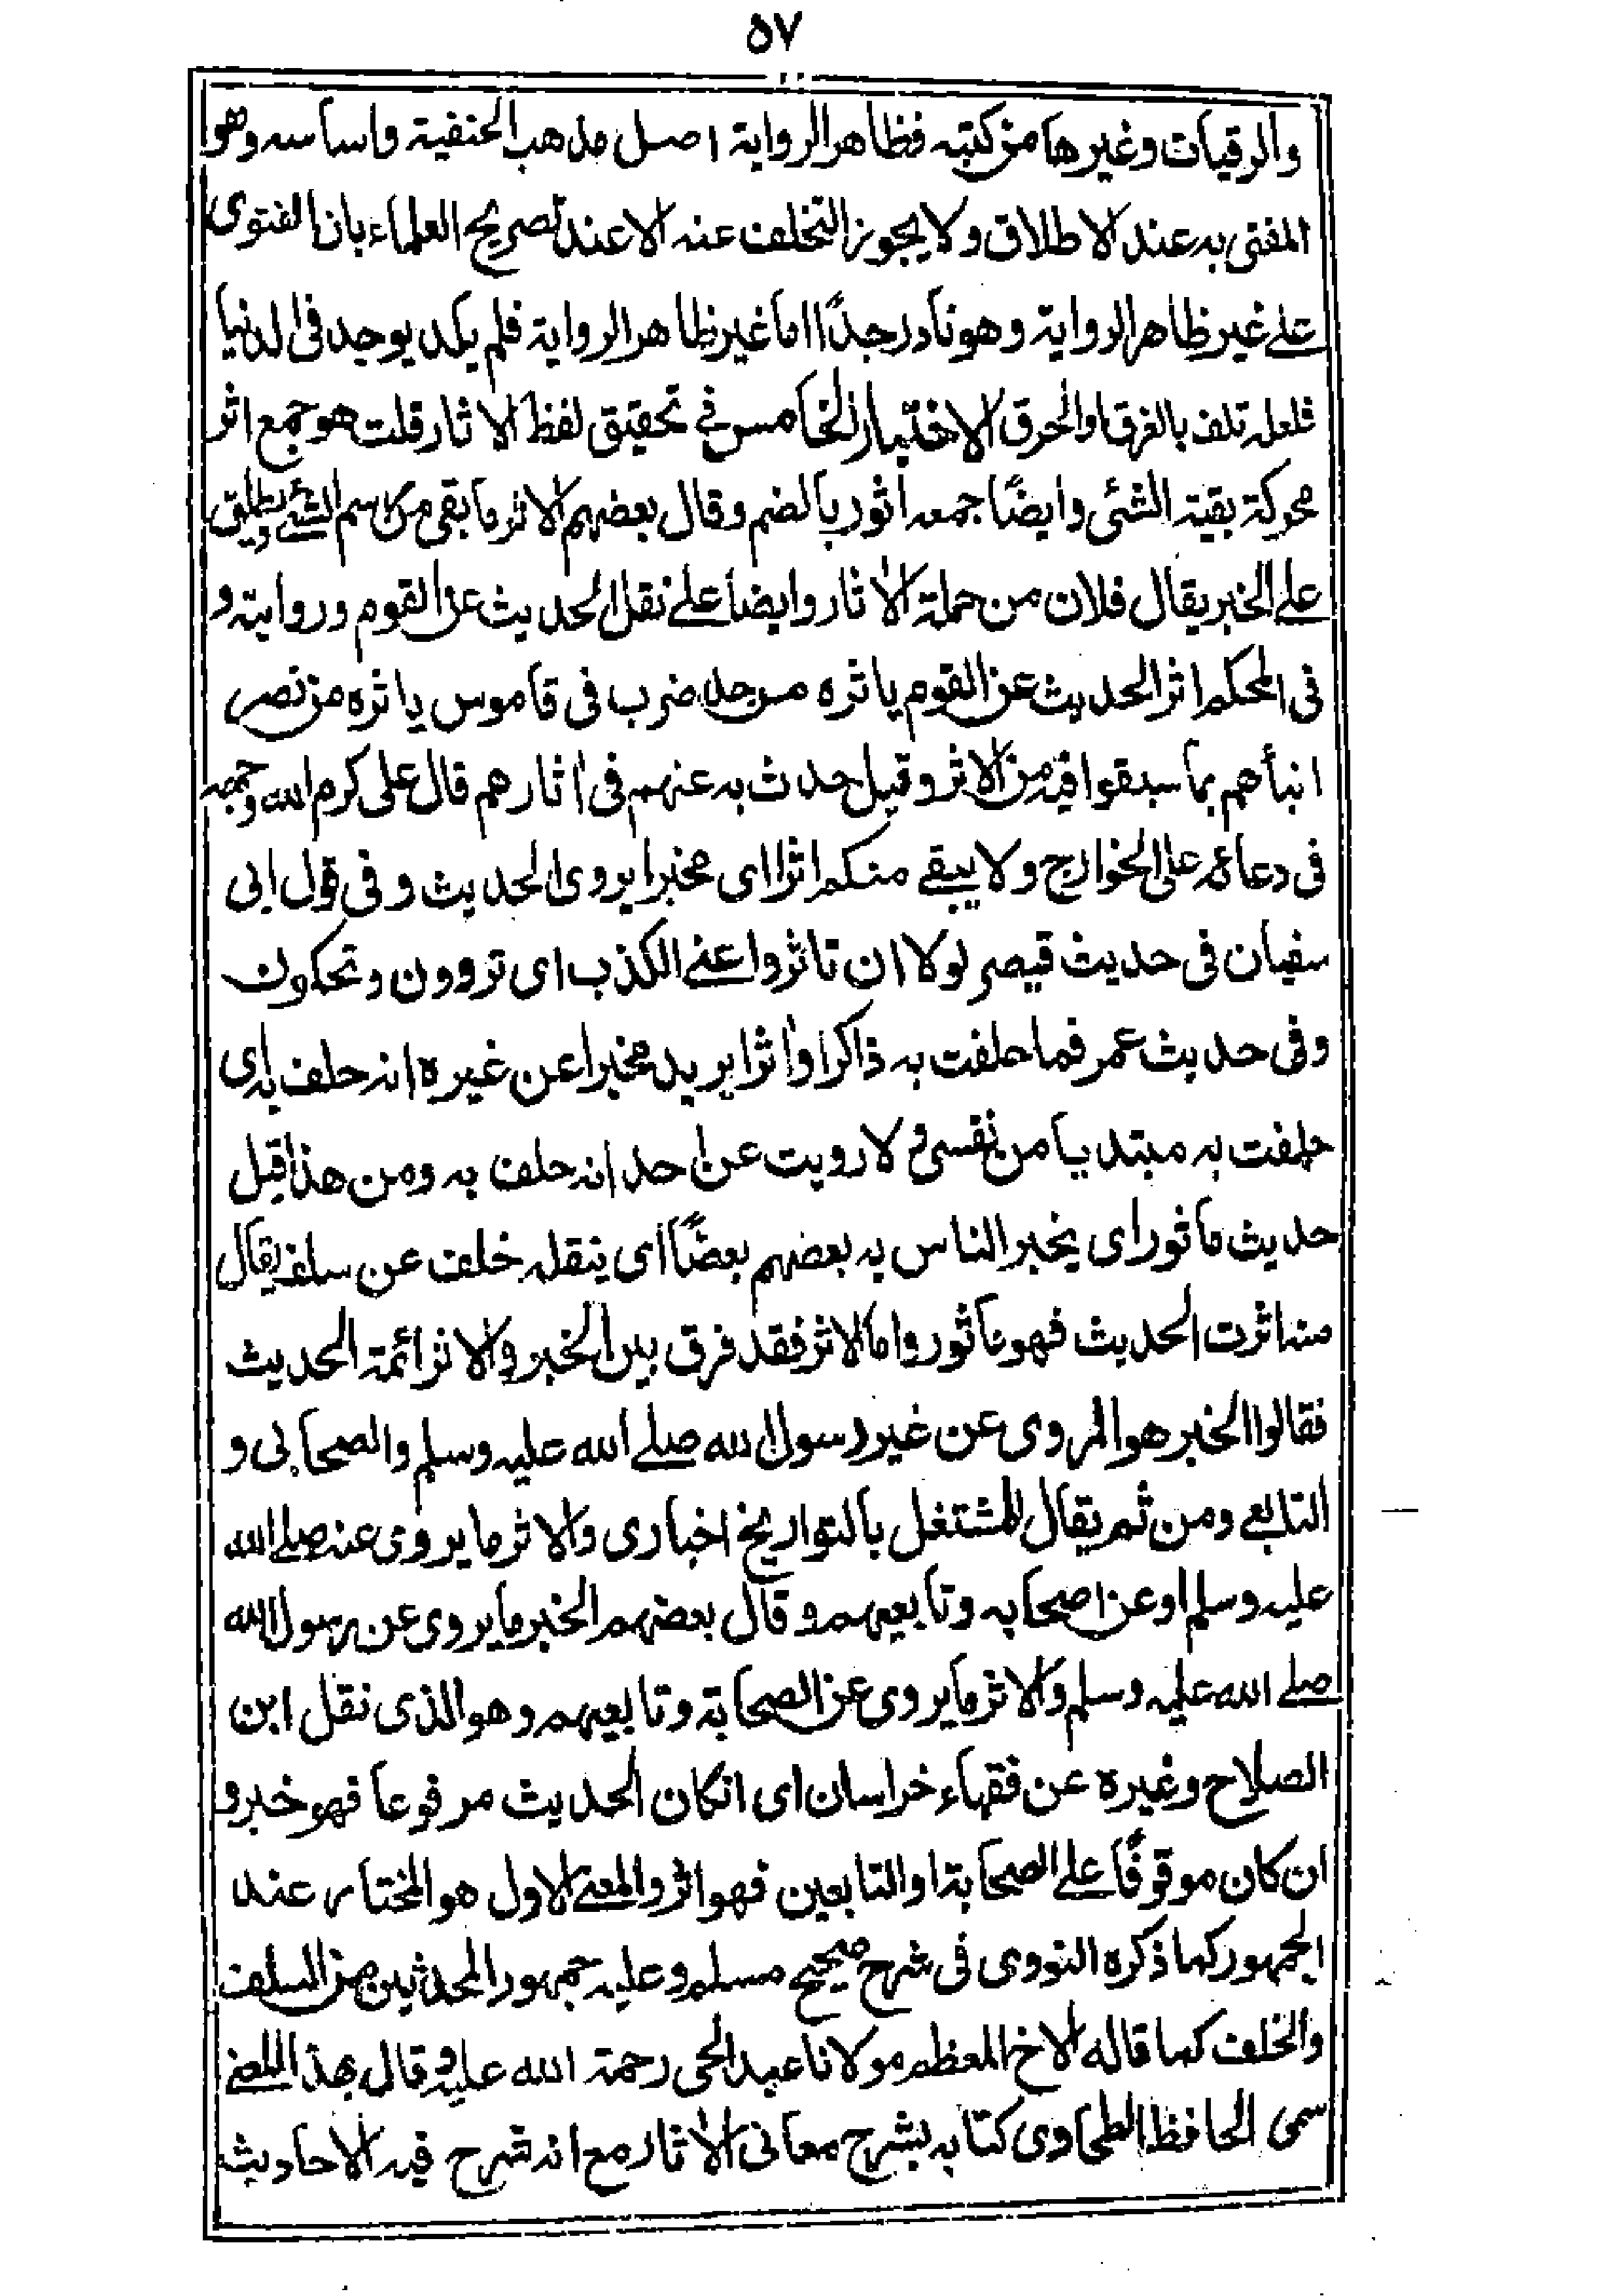 ٥٧
والرقيات وغيرها من كتبه فظاهر الرواية اصل مذهب الحنفية واساسه وهو
المفتى به عند الاطلاق ولا يجوز التخلف عنه الا عند تصريح العلماء بان الفتوى
على غير ظاهر الرواية وهو نادر جدًا اما غير ظاهر الرواية فلم يكد يوجد فى الدنيا
فلعله تلف بالغرق او الحرق الاختيار الخامس فى تحقيق لفظ الاثار قلت هو جمع اثر
محركة بقية الشئى وايضًا جمعه اثور بالضم وقال بعضهم الاثر ما بقى من اسم الشئ ويطلق
على الخبر يقال فلان من حملة الآثار وايضا على نقل الحديث عن القوم وروايته و
فى المحكم اثر الحديث عن القوم ياثره من حد ضرب فى قاموس ياثره من نصر
انبأهم بما سبقوا فيه من الاثر وقيل حدث به عنهم فى آثارهم قال على كرم الله وجهه
فى دعائه على الخوارج ولا يبقى منكم اثرا اى مخبرا يروى الحديث وفى قول ابى
سفيان فى حديث قيصر لولا ان تاثروا عنى الكذب اى تروون وتحكون
وفى حديث عمر فما حلفت به ذاكرا وآثرا يريد مخبرا عن غيره انه حلف به اى
حلفت به مبتديا من نفسى ولا رويت عن احد انه حلف به ومن هذا قيل
حديث ماثور اى يخبر الناس به بعضهم بعضًا اى ينقله خلف عن سلف يقال
منه اثرت الحديث فهو ماثور واما الاثر فقد فرق بين الخبر والاثر ائمة الحديث
فقالوا الخبر هو المروى عن غير رسول الله صلى الله عليه وسلم والصحابى و
التابعى ومن ثم يقال للمشتغل بالتواريخ اخبارى والاثر ما يروى عنه صلى الله
عليه وسلم او عن اصحابه وتابعيهم وقال بعضهم الخبر ما يروى عن رسول الله
صلى الله عليه وسلم والاثر ما يروى عن الصحابة وتابعيهم وهو الذى نقل ابن
الصلاح وغيره عن فقهاء خراسان اى انكان الحديث مرفوعا فهو خبر و
ان كان موقوفًا على الصحابة او التابعين فهو اثر والمعنى الاول هو المختار عند
الجمهور كما ذكره النووى فى شرح صحيح مسلم وعليه جمهور المحدثين من السلف
والخلف كما قاله الاخ المعظم مولانا عبد الحى رحمة الله عليه وقال بهذا المعنى
سمى الحافظ الطحاوى كتابه بشرح معانى الآثار مع انه شرح فيه الاحاديث